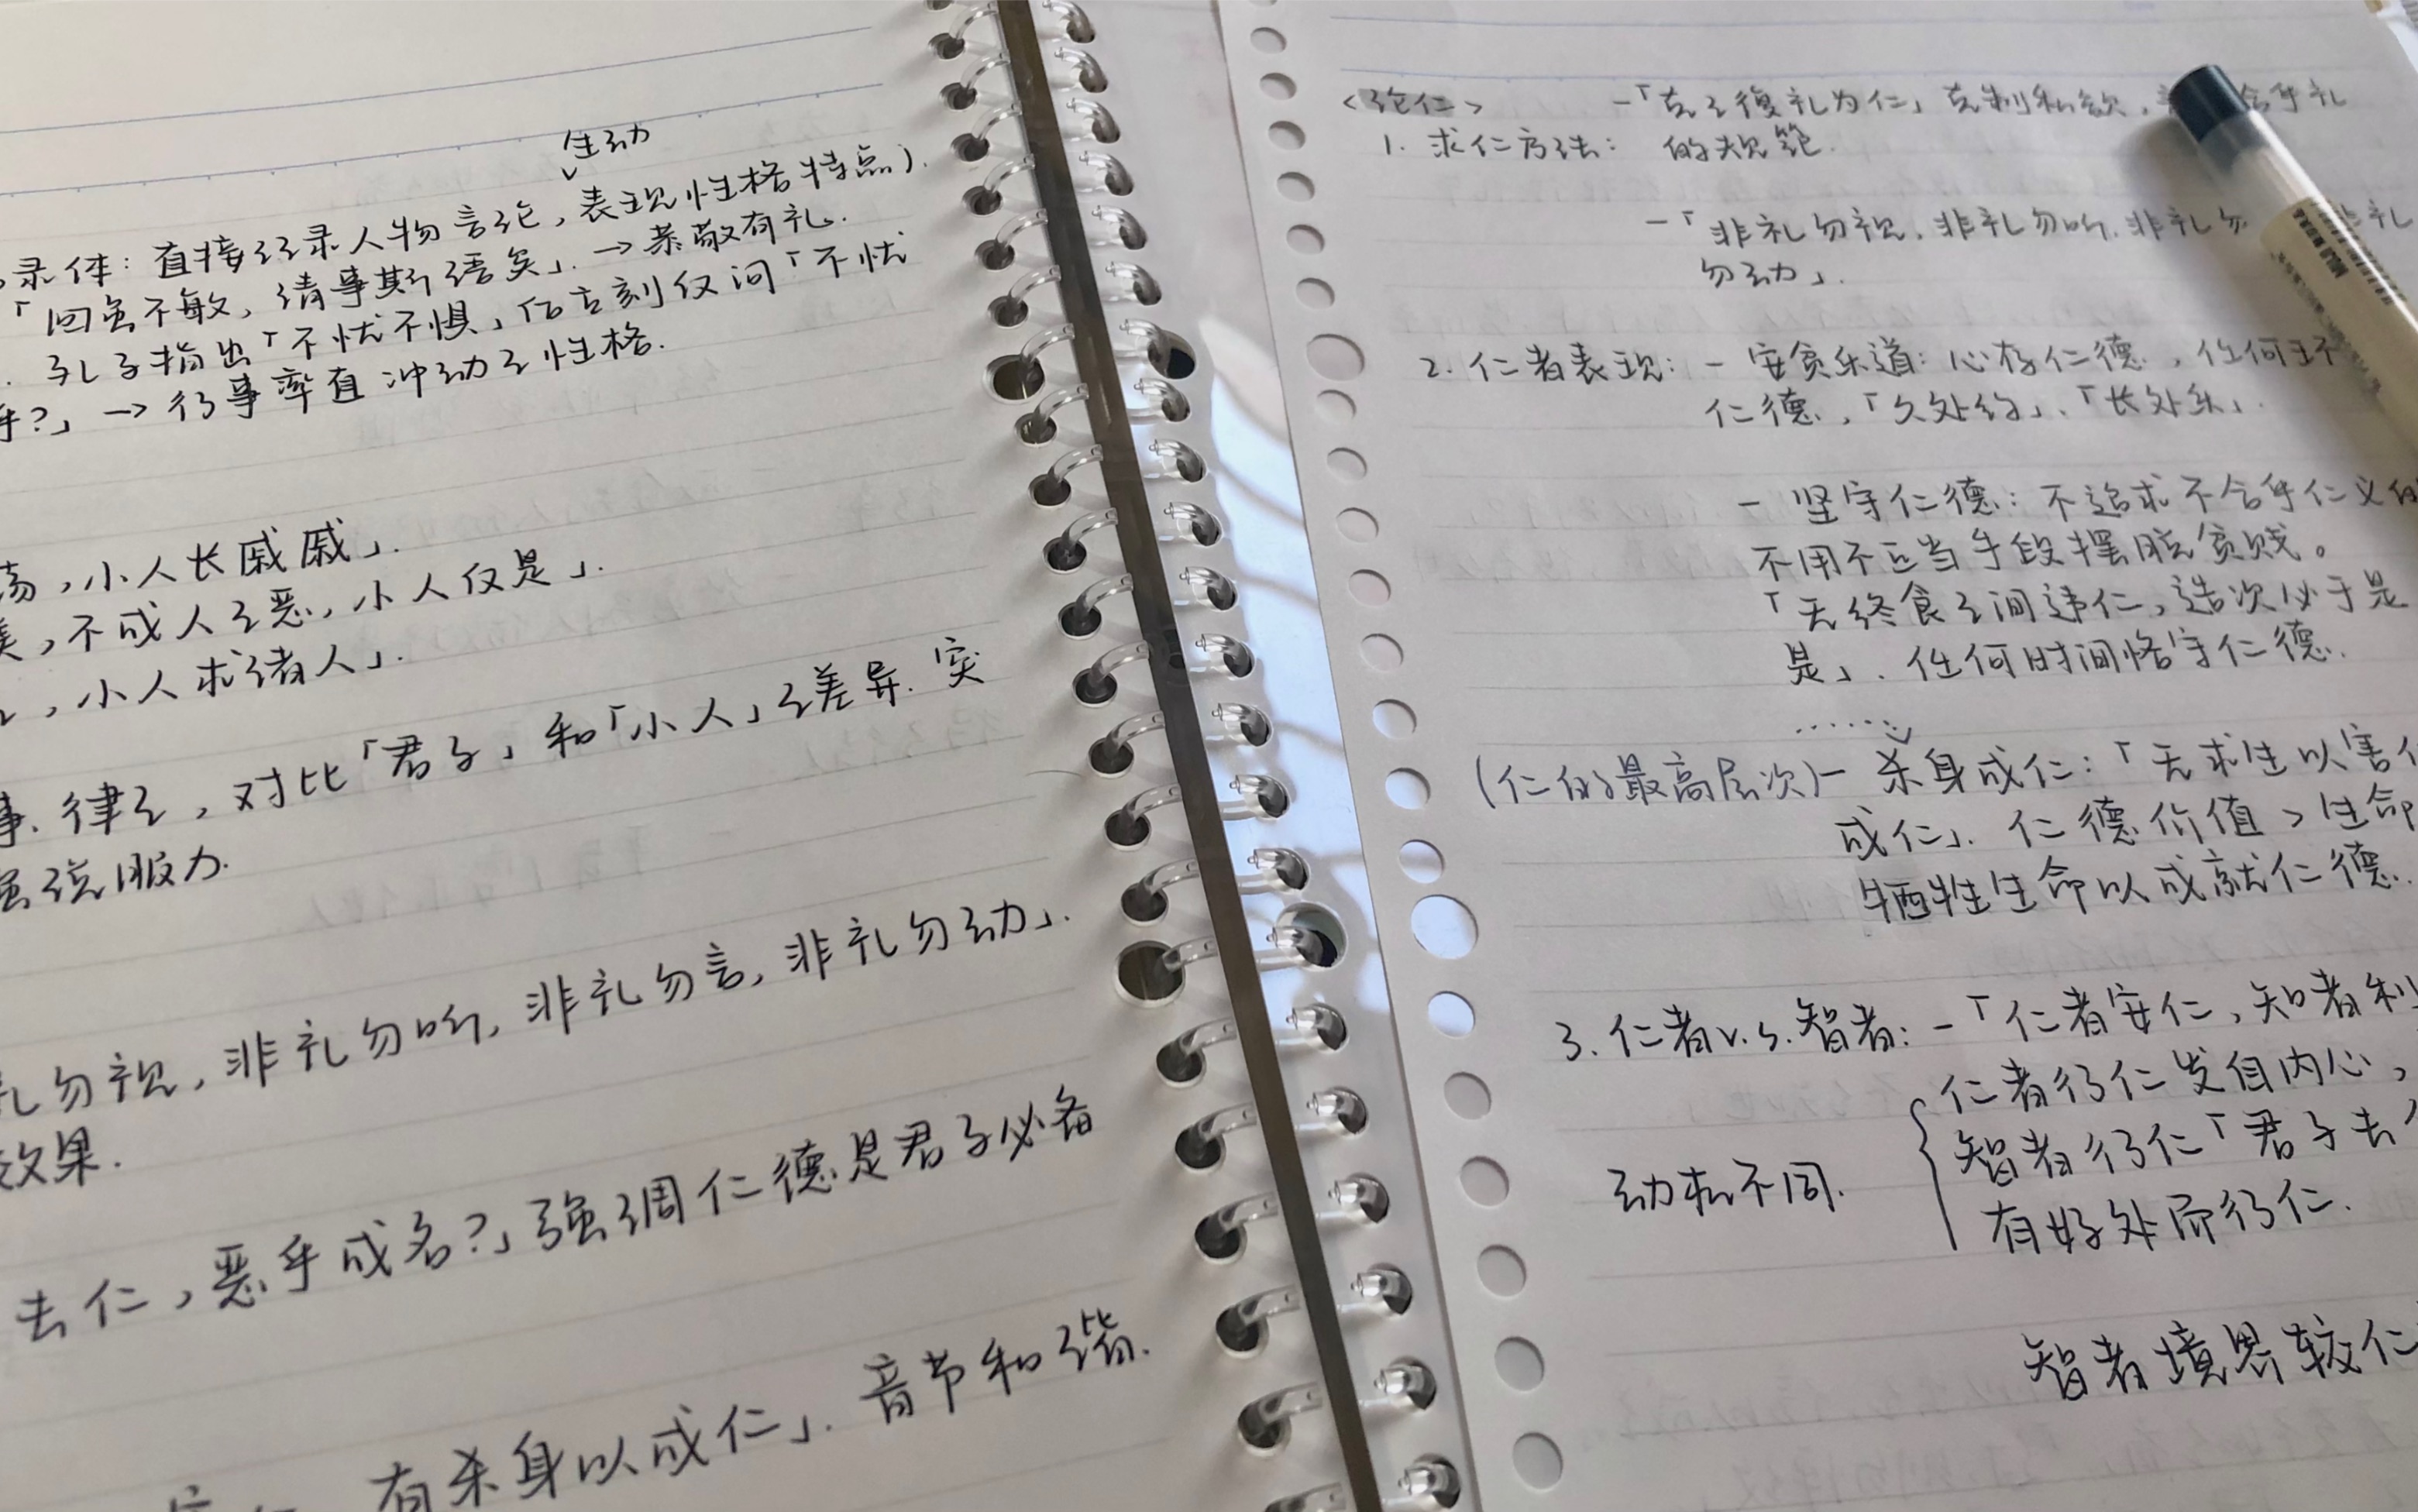 生动
录体：直接记录人物言论，表现性格特点）.
「回虽不敏，请事斯语矣」. → 恭敬有礼.
. 孔子指出「不忧不惧」后立刻仅问「不忧
乎?」→ 行事率直冲动之性格.
荡，小人长戚戚」.
美，不成人之恶，小人仅是」.
，小人求诸人」.
事. 律己，对比「君子」和「小人」之差异. 突
强说服力.
礼勿视，非礼勿听，非礼勿言，非礼勿动」.
效果.
去仁，恶乎成名?」强调仁德是君子必备
有杀身以成仁」. 音节和谐.
<论仁>
-「克己復礼为仁」克制私欲，合乎礼
1. 求仁方法：的规范.
-「非礼勿视. 非礼勿听. 非礼勿 非礼
勿动」.
2. 仁者表现：- 安贫乐道：心存仁德，任何环
仁德，「久处约」、「长处乐」.
- 坚守仁德：不追求不合乎仁义的
不用不正当手段摆脱贫贱。
「无终食之间违仁，造次必于是
是」. 任何时间恪守仁德.
(仁的最高层次) - 杀身成仁：「无求生以害仁
成仁」. 仁德价值 > 生命
牺牲生命以成就仁德.
3. 仁者v.s.智者：-「仁者安仁，知者利
仁者行仁发自内心，
动机不同.
智者行仁「君子去
有好处而行仁.
智者境界较仁
MUJI